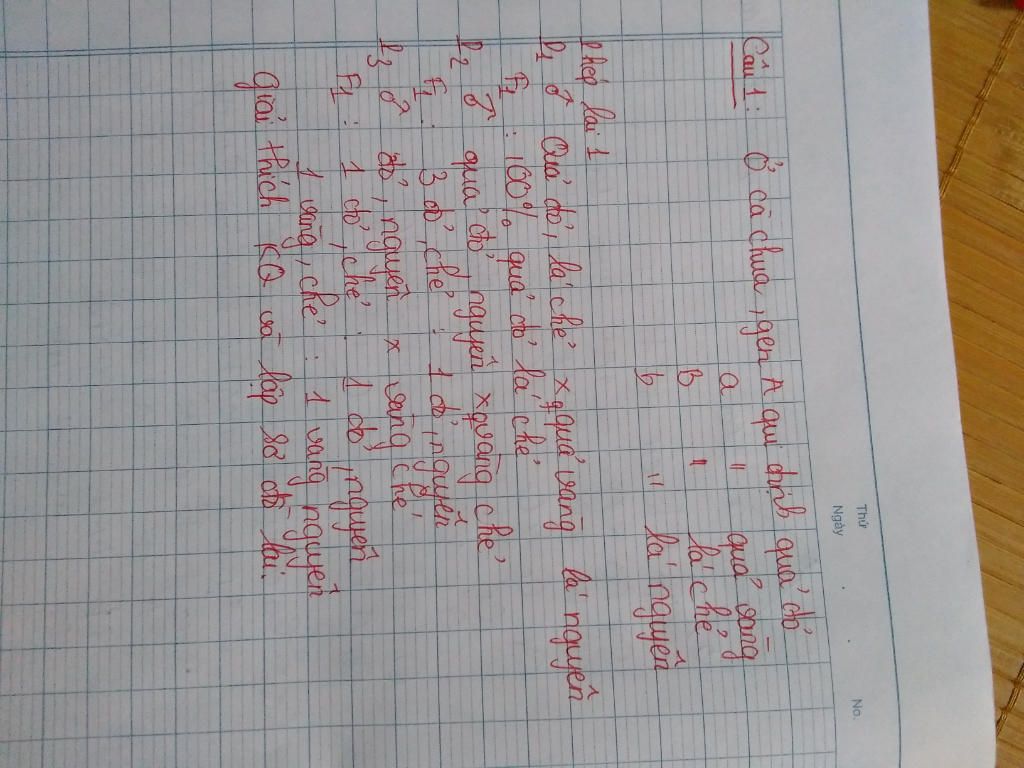 Thứ
Ngày
No.
Câu 1: Ở cà chua, gen A qui định quả đỏ
a " quả vàng
B " lá chẻ
b " lá nguyên
Phép lai 1
P1 ♂ Quả đỏ, lá chẻ x ♀ quả vàng lá nguyên
F1 : 100% quả đỏ lá chẻ
P2 ♂ quả đỏ nguyên x ♀ vàng chẻ
F1 : 3 đỏ, chẻ : 1 đỏ, nguyên
P3 ♂ đỏ, nguyên x vàng chẻ
F1 : 1 đỏ, chẻ : 1 đỏ, nguyên
1 vàng, chẻ : 1 vàng nguyên
Giải thích KQ và lập sơ đồ lai.